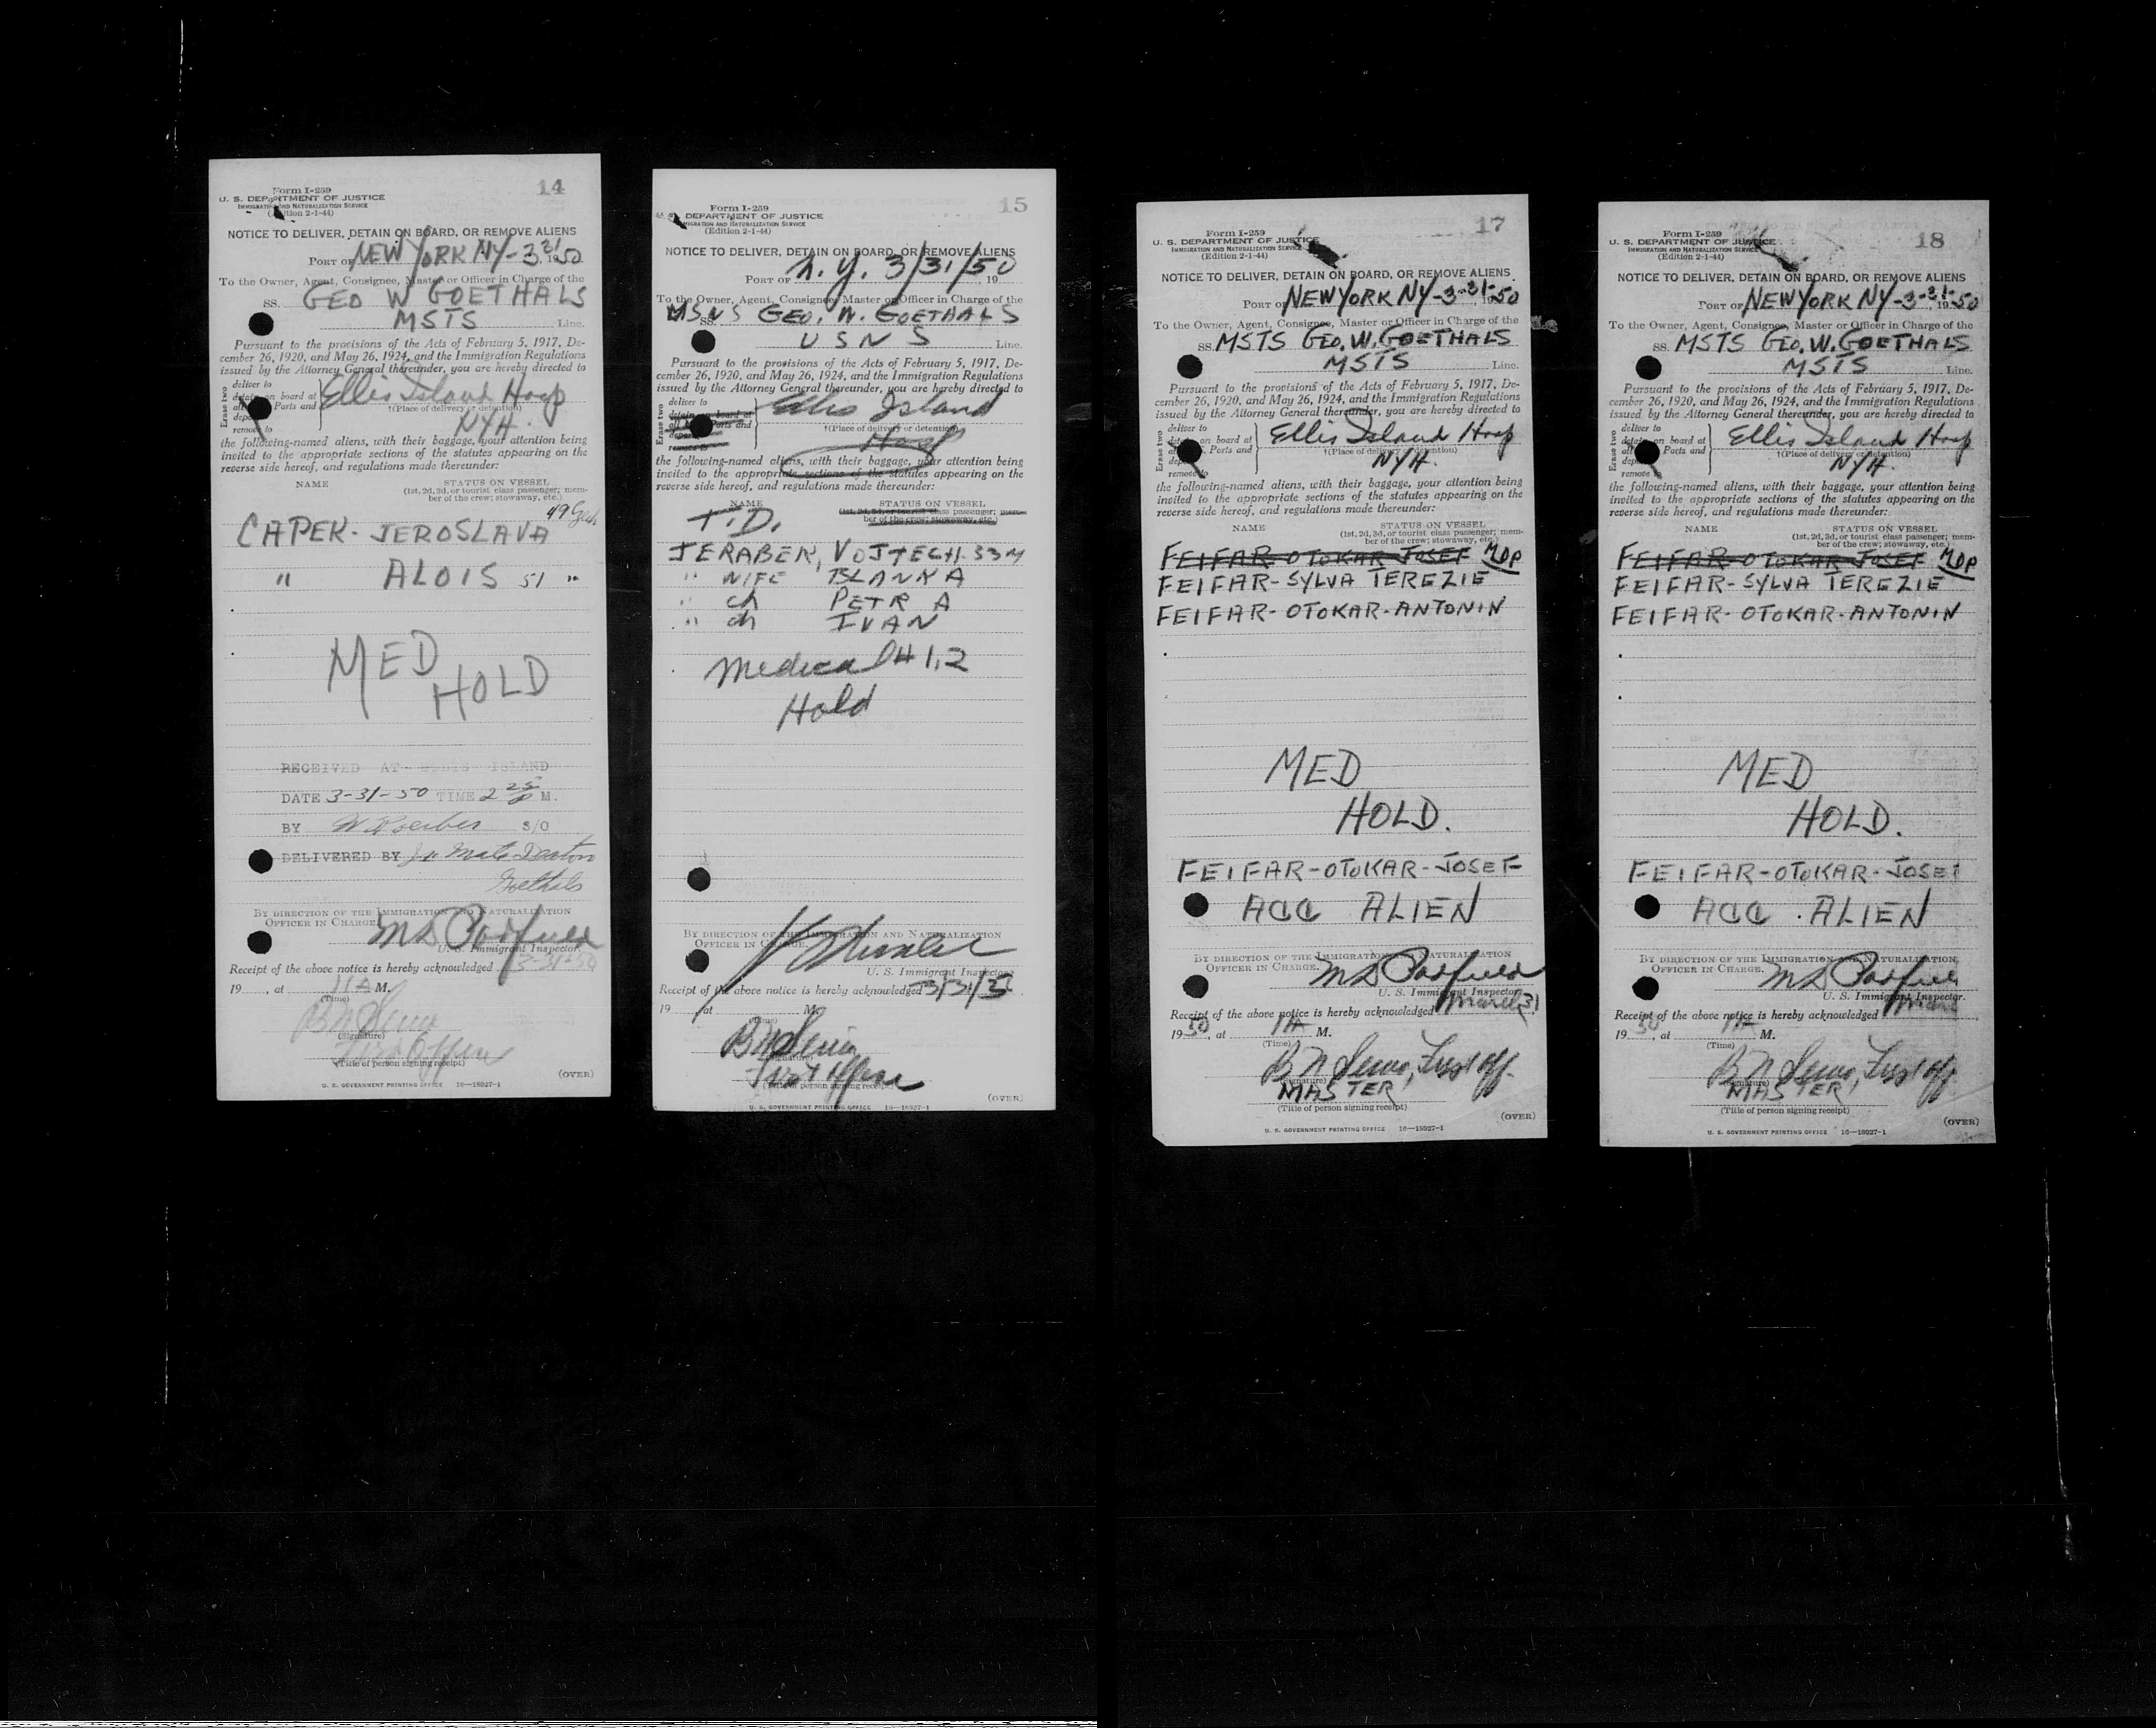 14
Form I-259
U. S. DEPARTMENT OF JUSTICE
IMMIGRATION AND NATURALIZATION SERVICE
(Edition 2-1-44)
NOTICE TO DELIVER, DETAIN ON BOARD, OR REMOVE ALIENS
PORT OF NEW YORK NY-3-31-1950
To the Owner, Agent, Consignee, Master or Officer in Charge of the
SS. GEO W GOETHALS
MSTS Line.
Pursuant to the provisions of the Acts of February 5, 1917, De-
cember 26, 1920, and May 26, 1924, and the Immigration Regulations
issued by the Attorney General thereunder, you are hereby directed to
Erase two
deliver to
detain on board at
all Parts and
remove to
Ellis Island Hosp
†(Place of delivery or detention)
NYH.
the following-named aliens, with their baggage, your attention being
invited to the appropriate sections of the statutes appearing on the
reverse side hereof, and regulations made thereunder:
NAME STATUS ON VESSEL
(1st, 2d, 3d, or tourist class passenger; mem-
ber of the crew; stowaway, etc.)
CAPEK- JEROSLAVA 49
" ALOIS 51 "
MED
HOLD
RECEIVED AT ELLIS ISLAND
DATE 3-31-50 TIME 2 25 P M.
BY S/O
DELIVERED BY Jr Mate
Goethals
BY DIRECTION OF THE IMMIGRATION AND NATURALIZATION
OFFICER IN CHARGE.
M D Padfield
U. S. Immigrant Inspector.
Receipt of the above notice is hereby acknowledged 3-31-50
19 , at 11 A M.
(Time)
(Signature)
First Officer
(Title of person signing receipt)
(OVER)
U. S. GOVERNMENT PRINTING OFFICE 16-18027-1
15
Form I-259
U. S. DEPARTMENT OF JUSTICE
IMMIGRATION AND NATURALIZATION SERVICE
(Edition 2-1-44)
NOTICE TO DELIVER, DETAIN ON BOARD, OR REMOVE ALIENS
PORT OF N. Y. 3/31/50 , 19
To the Owner, Agent, Consignee, Master or Officer in Charge of the
SS. MSNS GEO. W. GOETHALS
USNS Line.
Pursuant to the provisions of the Acts of February 5, 1917, De-
cember 26, 1920, and May 26, 1924, and the Immigration Regulations
issued by the Attorney General thereunder, you are hereby directed to
Erase two
deliver to
detain on board at
all Parts and
remove to
Ellis Island
†(Place of delivery or detention)
Hosp
the following-named aliens, with their baggage, your attention being
invited to the appropriate sections of the statutes appearing on the
reverse side hereof, and regulations made thereunder:
NAME STATUS ON VESSEL
(1st, 2d, 3d, or tourist class passenger; mem-
ber of the crew; stowaway, etc.)
T.D.
JERABEK, VOJTECH 33M
" WIFE BLANKA
" ch PETR A
" ch IVAN
Medical # 1,2
Hold
BY DIRECTION OF THE IMMIGRATION AND NATURALIZATION
OFFICER IN CHARGE.
U. S. Immigrant Inspector.
Receipt of the above notice is hereby acknowledged 3/31/50
19 , at M.
(Time)
(Signature)
First Officer
(Title of person signing receipt)
(OVER)
U. S. GOVERNMENT PRINTING OFFICE 16-18027-1
17
Form I-259
U. S. DEPARTMENT OF JUSTICE
IMMIGRATION AND NATURALIZATION SERVICE
(Edition 2-1-44)
NOTICE TO DELIVER, DETAIN ON BOARD, OR REMOVE ALIENS
PORT OF NEW YORK NY-3-31-1950
To the Owner, Agent, Consignee, Master or Officer in Charge of the
SS. MSTS GEO. W. GOETHALS
MSTS Line.
Pursuant to the provisions of the Acts of February 5, 1917, De-
cember 26, 1920, and May 26, 1924, and the Immigration Regulations
issued by the Attorney General thereunder, you are hereby directed to
Erase two
deliver to
detain on board at
all Parts and
remove to
Ellis Island Hosp
†(Place of delivery or detention)
NYH.
the following-named aliens, with their baggage, your attention being
invited to the appropriate sections of the statutes appearing on the
reverse side hereof, and regulations made thereunder:
NAME STATUS ON VESSEL
(1st, 2d, 3d, or tourist class passenger; mem-
ber of the crew; stowaway, etc.)
FEIFAR-OTOKAR JOSEF MDP
FEIFAR-SYLVA TEREZIE
FEIFAR-OTOKAR-ANTONIN
MED
HOLD.
FEIFAR-OTOKAR-JOSEF
ACC ALIEN
BY DIRECTION OF THE IMMIGRATION AND NATURALIZATION
OFFICER IN CHARGE.
M D Padfield
U. S. Immigrant Inspector.
Receipt of the above notice is hereby acknowledged March 31
1950, at 11A M.
(Time)
First Off.
(Signature)
MASTER
(Title of person signing receipt)
(OVER)
U. S. GOVERNMENT PRINTING OFFICE 16-18027-1
18
Form I-259
U. S. DEPARTMENT OF JUSTICE
IMMIGRATION AND NATURALIZATION SERVICE
(Edition 2-1-44)
NOTICE TO DELIVER, DETAIN ON BOARD, OR REMOVE ALIENS
PORT OF NEW YORK NY-3-31-1950
To the Owner, Agent, Consignee, Master or Officer in Charge of the
SS. MSTS GEO. W. GOETHALS
MSTS Line.
Pursuant to the provisions of the Acts of February 5, 1917, De-
cember 26, 1920, and May 26, 1924, and the Immigration Regulations
issued by the Attorney General thereunder, you are hereby directed to
Erase two
deliver to
detain on board at
all Parts and
remove to
Ellis Island Hosp
†(Place of delivery or detention)
NYH.
the following-named aliens, with their baggage, your attention being
invited to the appropriate sections of the statutes appearing on the
reverse side hereof, and regulations made thereunder:
NAME STATUS ON VESSEL
(1st, 2d, 3d, or tourist class passenger; mem-
ber of the crew; stowaway, etc.)
FEIFAR-OTOKAR JOSEF MDP
FEIFAR-SYLVA TEREZIE
FEIFAR-OTOKAR-ANTONIN
MED
HOLD.
FEIFAR-OTOKAR-JOSEF
ACC. ALIEN
BY DIRECTION OF THE IMMIGRATION AND NATURALIZATION
OFFICER IN CHARGE.
M D Padfield
U. S. Immigrant Inspector.
Receipt of the above notice is hereby acknowledged March
1950, at 11A M.
(Time)
First Off.
(Signature)
MASTER
(Title of person signing receipt)
(OVER)
U. S. GOVERNMENT PRINTING OFFICE 16-18027-1